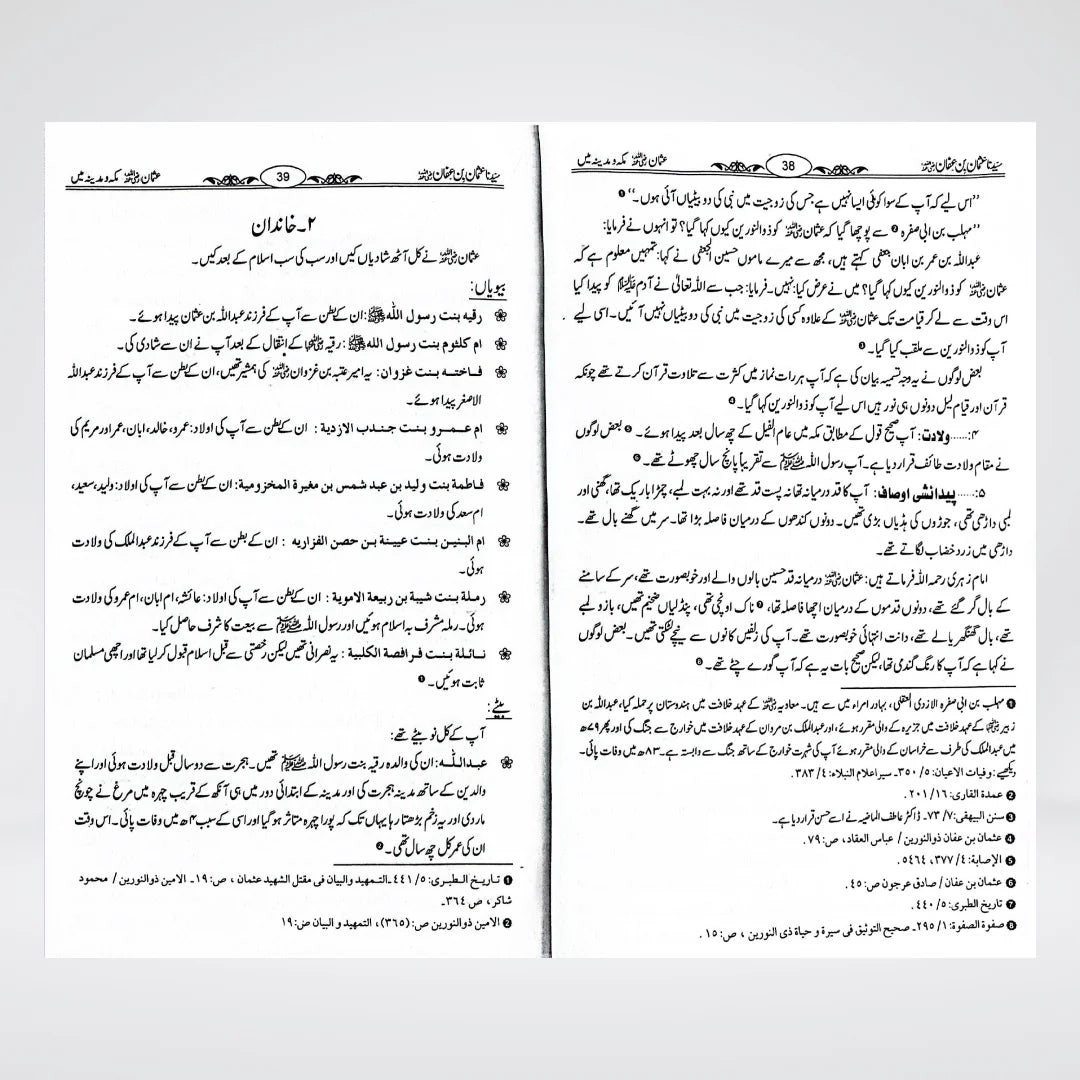 سیّدنا عثمان بن عفان رضی اللہ عنہ 38 عثمان رضی اللہ عنہ مکہ و مدینہ میں
’’اس لیے کہ آپ کے سوا کوئی ایسا نہیں ہے جس کی زوجیت میں نبی کی دو بیٹیاں آئی ہوں۔‘‘ ❶
’’مہلب بن ابی صفرہ ❷ سے پوچھا گیا کہ عثمان رضی اللہ عنہ کو ذوالنورین کیوں کہا گیا؟ تو انہوں نے فرمایا:
عبداللہ بن عمر بن ابان جعفی کہتے ہیں، مجھ سے میرے ماموں حسین الجعفی نے کہا: تمہیں معلوم ہے کہ
عثمان رضی اللہ عنہ کو ذوالنورین کیوں کہا گیا؟ میں نے عرض کیا: نہیں۔ فرمایا: جب سے اللہ تعالیٰ نے آدم علیہ السلام کو پیدا کیا
اس وقت سے لے کر قیامت تک عثمان رضی اللہ عنہ کے علاوہ کسی کی زوجیت میں نبی کی دو بیٹیاں نہیں آئیں۔ اسی لیے
آپ کو ذوالنورین سے ملقب کیا گیا۔ ❸
بعض لوگوں نے یہ وجہ تسمیہ بیان کی ہے کہ آپ ہر رات نماز میں کثرت سے تلاوت قرآن کرتے تھے چونکہ
قرآن اور قیام لیل دونوں ہی نور ہیں اس لیے آپ کو ذوالنورین کہا گیا۔ ❹
۴:...... ولادت: آپ صحیح قول کے مطابق مکہ میں عام الفیل کے چھ سال بعد پیدا ہوئے۔ ❺ بعض لوگوں
نے مقام ولادت طائف قرار دیا ہے۔ آپ رسول اللہ ﷺ سے تقریباً پانچ سال چھوٹے تھے۔ ❻
۵:...... پیدائشی اوصاف: آپ کا قد درمیانہ تھا نہ پست قد تھے اور نہ بہت لمبے، چمڑا باریک تھا، گھنی اور
لمبی داڑھی تھی، جوڑوں کی ہڈیاں بڑی تھیں۔ دونوں کندھوں کے درمیان فاصلہ بڑا تھا۔ سر میں گھنے بال تھے۔
داڑھی میں زرد خضاب لگاتے تھے۔
امام زہری رحمہ اللہ فرماتے ہیں: عثمان رضی اللہ عنہ درمیانہ قد حسین بالوں والے اور خوبصورت تھے، سر کے سامنے
کے بال گر گئے تھے، دونوں قدموں کے درمیان اچھا فاصلہ تھا، ❼ ناک اونچی تھی، پنڈلیاں ضخیم تھیں، بازو لمبے
تھے، بال گھنگھریالے تھے، دانت انتہائی خوبصورت تھے۔ آپ کی زلفیں کانوں سے نیچے لٹکتی تھیں۔ بعض لوگوں
نے کہا ہے کہ آپ کا رنگ گندمی تھا، لیکن صحیح بات یہ ہے کہ آپ گورے چٹے تھے۔ ❽
❶ مہلب بن ابی صفرہ الازدی العقلی، بہادر امراء میں سے ہیں۔ معاویہ رضی اللہ عنہ کے عہد خلافت میں ہندوستان پر حملہ کیا، عبداللہ بن
زبیر رضی اللہ عنہما کے عہد خلافت میں جزیرہ کے والی مقرر ہوئے، اور عبدالملک بن مروان کے عہد خلافت میں خوارج سے جنگ کی اور پھر ۷۹ھ
میں عبدالملک کی طرف سے خراسان کے والی مقرر ہوئے آپ کی شہرت خوارج کے ساتھ جنگ سے وابستہ ہے۔ ۸۳ھ میں وفات پائی۔
دیکھیے: وفیات الاعیان: ۵/ ۳۵۰۔ سیر اعلام النبلاء: ۴/ ۳۸۳۔
❷ عمدة القاری: ۱۶/ ۲۰۱ .
❸ سنن البیھقی: ۷/ ۷۳۔ ڈاکٹر عاطف الماضیہ نے اسے حسن قرار دیا ہے۔
❹ عثمان بن عفان ذوالنورین / عباس العقاد، ص: ۷۹ .
❺ الإصابة: ۴/ ۳۷۷، ۵۴۶۴ .
❻ عثمان بن عفان / صادق عرجون ص: ۴۵ .
❼ تاریخ الطبری: ۵/ ۴۴۰ .
❽ صفوة الصفوة: ۱/ ۲۹۵۔ صحیح التوثیق فی سیرة و حیاة ذی النورین ، ص: ۱۵ .
سیّدنا عثمان بن عفان رضی اللہ عنہ 39 عثمان رضی اللہ عنہ مکہ و مدینہ میں
۲۔ خاندان
عثمان رضی اللہ عنہ نے کل آٹھ شادیاں کیں اور سب کی سب اسلام کے بعد کیں۔
بیویاں:
رقیہ بنت رسول اللہ ﷺ: ان کے بطن سے آپ کے فرزند عبداللہ بن عثمان پیدا ہوئے۔
ام کلثوم بنت رسول اللہ ﷺ: رقیہ رضی اللہ عنہا کے انتقال کے بعد آپ نے ان سے شادی کی۔
فاختہ بنت غزوان: یہ امیر عتبہ بن غزوان رضی اللہ عنہ کی ہمشیر تھیں، ان کے بطن سے آپ کے فرزند عبداللہ
الاصغر پیدا ہوئے۔
ام عمرو بنت جندب الازدیة: ان کے بطن سے آپ کی اولاد: عمرو، خالد، ابان، عمر اور مریم کی
ولادت ہوئی۔
فاطمة بنت ولید بن عبد شمس بن مغیرة المخزومیة: ان کے بطن سے آپ کی اولاد: ولید، سعید،
ام سعد کی ولادت ہوئی۔
ام البنین بنت عیینة بن حصن الفزاریہ : ان کے بطن سے آپ کے فرزند عبدالملک کی ولادت
ہوئی۔
رملة بنت شیبة بن ربیعة الامویة : ان کے بطن سے آپ کی اولاد: عائشہ، ام ابان، ام عمرو کی ولادت
ہوئی۔ رملہ مشرف بہ اسلام ہوئیں اور رسول اللہ ﷺ سے بیعت کا شرف حاصل کیا۔
نائلة بنت فرافصة الکلبیة : یہ نصرانی تھیں لیکن رخصتی سے قبل اسلام قبول کر لیا تھا اور اچھی مسلمان
ثابت ہوئیں۔ ❶
بیٹے:
آپ کے کل نو بیٹے تھے:
عبداللہ: ان کی والدہ رقیہ بنت رسول اللہ ﷺ تھیں۔ ہجرت سے دو سال قبل ولادت ہوئی اور اپنے
والدین کے ساتھ مدینہ ہجرت کی اور مدینہ کے ابتدائی دور میں ہی آنکھ کے قریب چہرہ میں مرغ نے چونچ
مار دی اور یہ زخم بڑھتا رہا یہاں تک کہ پورا چہرہ متاثر ہو گیا اور اسی کے سبب ۴ھ میں وفات پائی۔ اس وقت
ان کی عمر کل چھ سال تھی۔ ❷
❶ تاریخ الطبری: ۵/ ۴۴۱۔ التمھید والبیان فی مقتل الشھید عثمان ، ص: ۱۹۔ الامین ذوالنورین / محمود
شاکر، ص ۳۶۴۔
❷ الامین ذوالنورین ص: (۳۶۵) ، التمھید و البیان ص: ۱۹